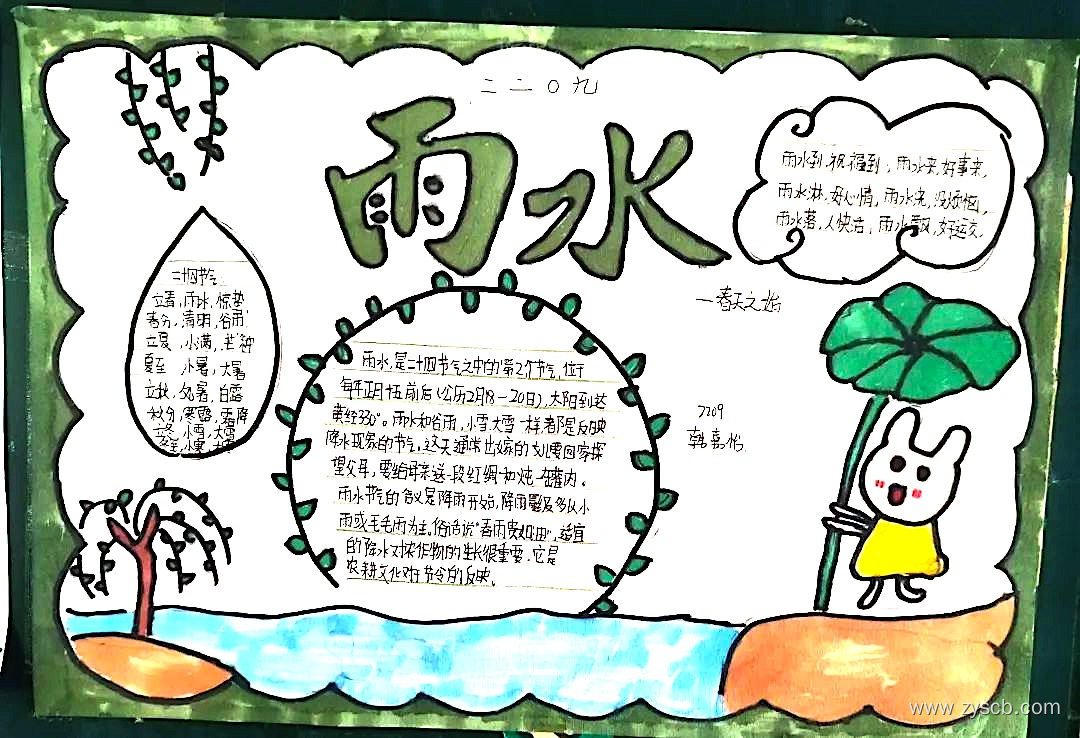 二二〇九
雨水
雨水到,祝福到;雨水来,好事来,
雨水淋,好心情,雨水浇,没烦恼,
雨水落,人快活;雨水飘,好运交.
二十四节气
立春,雨水,惊蛰
春分,清明,谷雨
立夏,小满,芒种
夏至 小暑,大暑
立秋,处暑,白露
秋分,寒露,霜降
立冬,小雪,大雪
冬至,小寒,大寒
一春天之始
雨水,是二十四节气之中的第2个节气,位于
每年正月十五前后(公历2月18-20日),太阳到达
黄经330°。雨水和谷雨,小雪大雪一样,都是反映
降水现象的节气,这天通常出嫁的女儿要回家探
望父母,要给母亲送一段红绸和炖一罐肉。
雨水节气的含义是降雨开始,降雨量级多以小
雨或毛毛雨为主。俗话说"春雨贵如油",适宜
的降水对农作物的生长很重要.它是
农耕文化对于节令的反映。
2209
www.zyscb.com